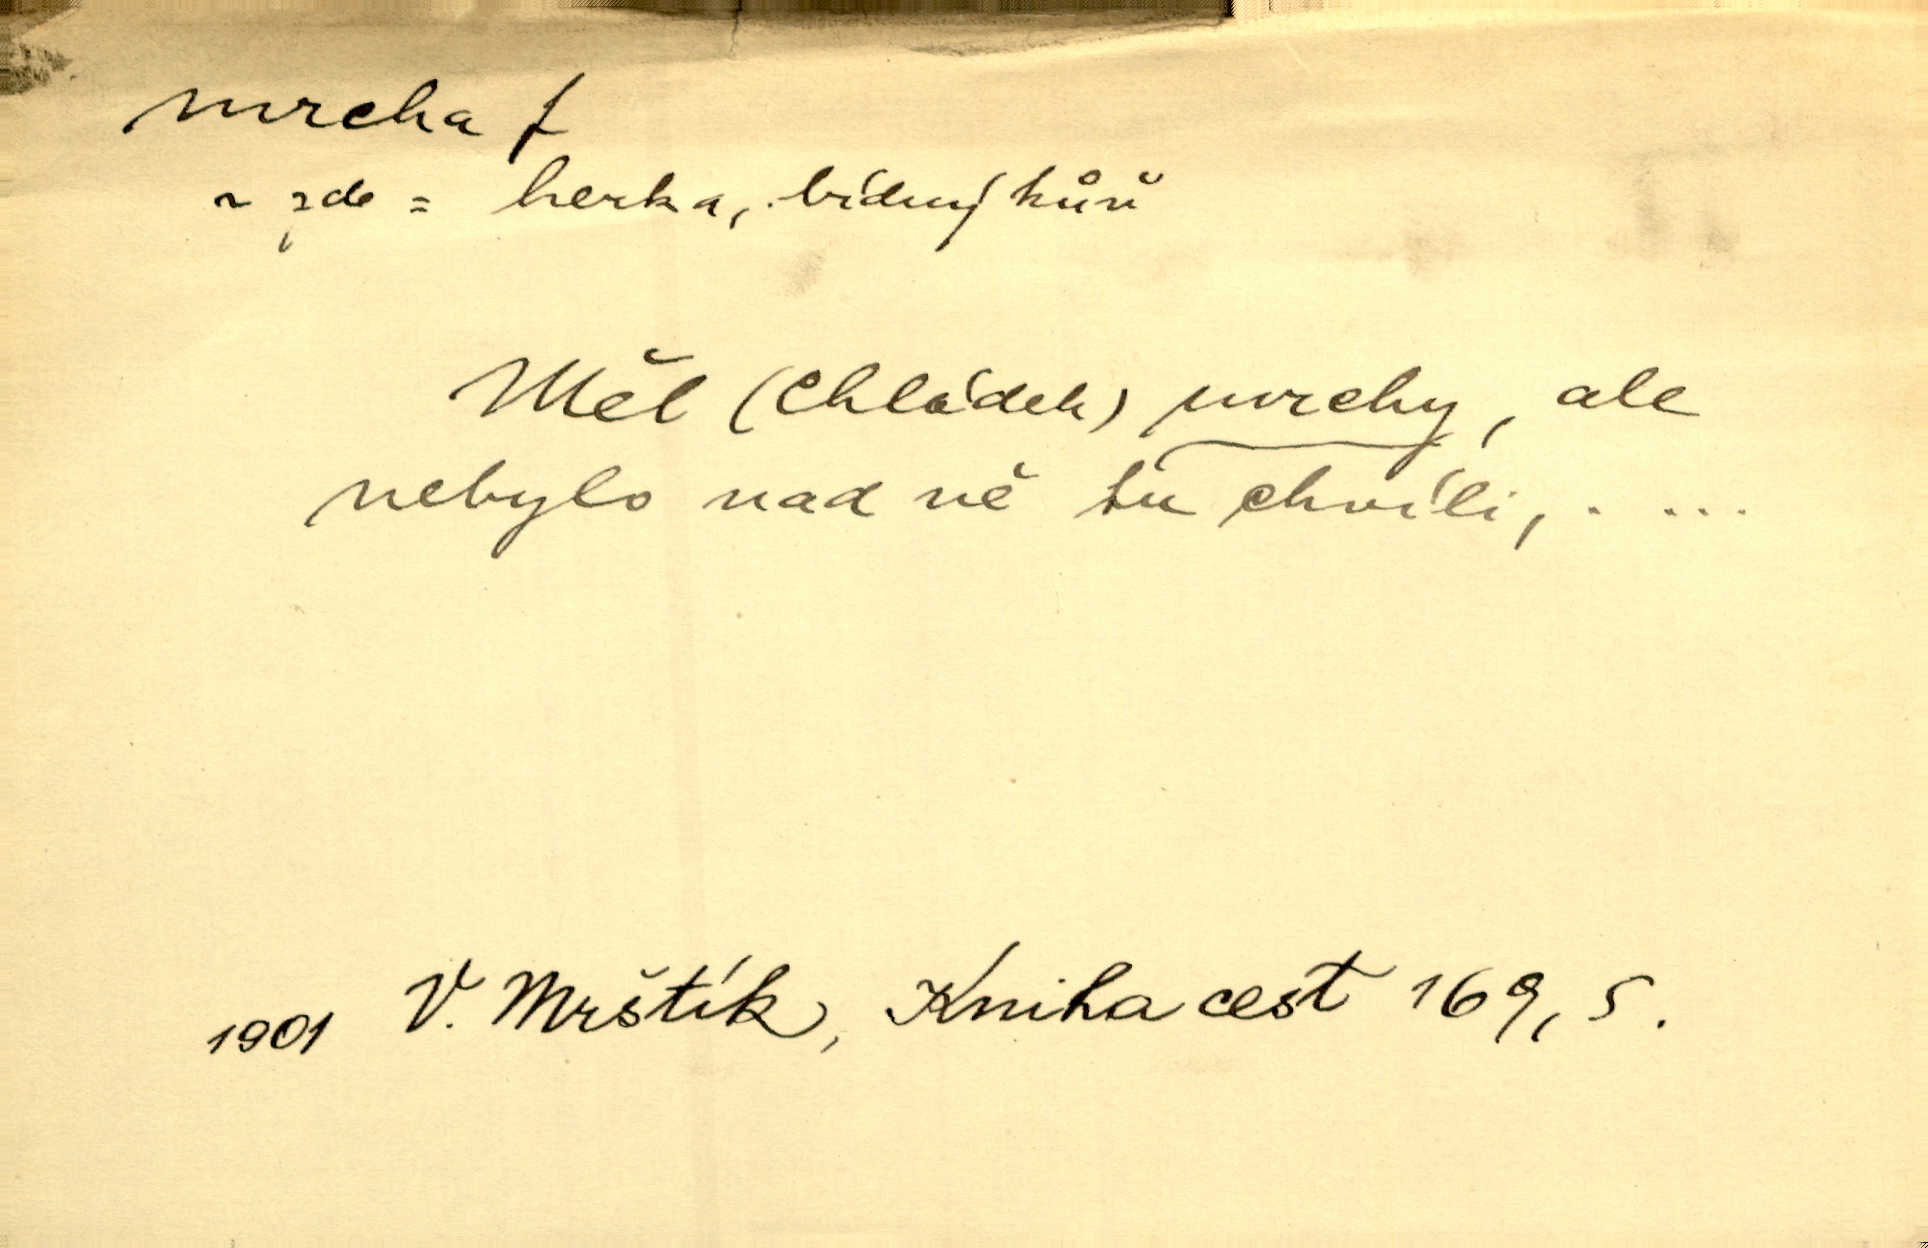 mrcha f
~ zde = herka, bídný kůň
Měl (Chládek) mrchy, ale
nebylo nad ně tu chvíli, . ...
1901 V. Mrštík, Kniha cest 169, 5.